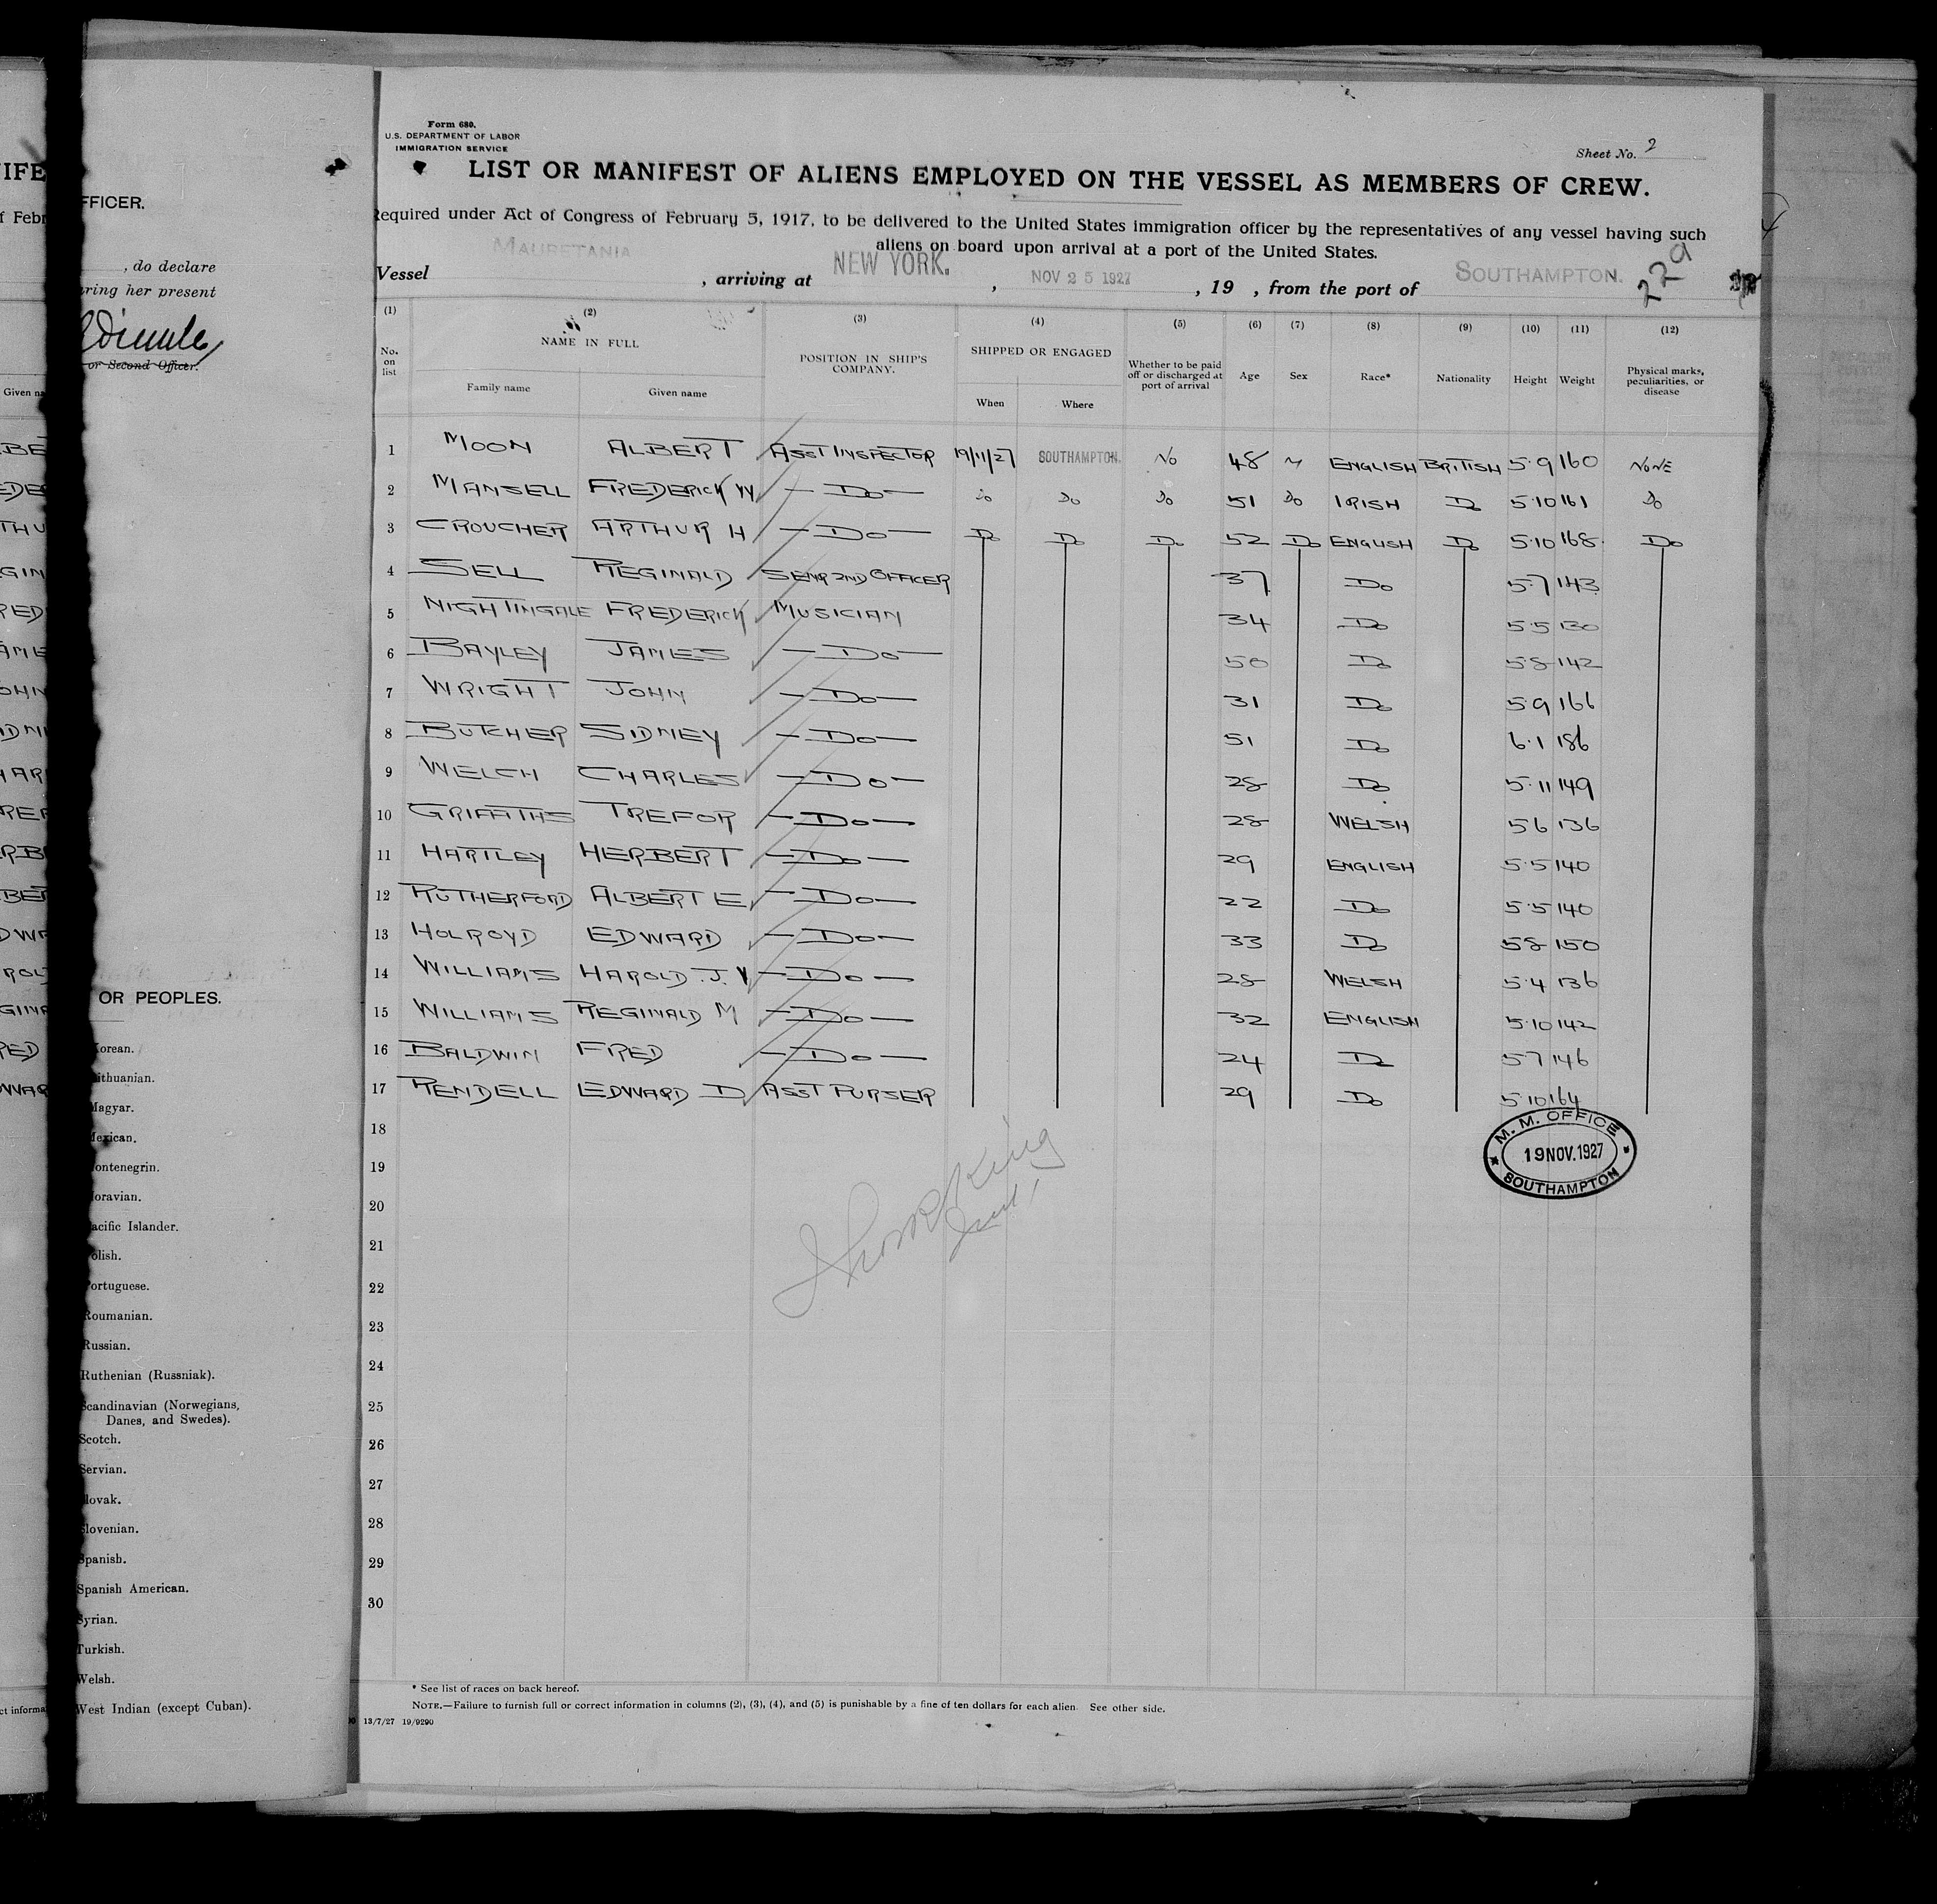 IFE
FFICER.
f Febr
, do declare
ring her present
or Second Officer.
Given na
OR PEOPLES.
Korean.
Lithuanian.
Magyar.
Mexican.
Montenegrin.
Moravian.
Pacific Islander.
Polish.
Portuguese.
Roumanian.
Russian.
Ruthenian (Russniak).
Scandinavian (Norwegians,
Danes, and Swedes).
Scotch.
Servian.
Slovak.
Slovenian.
Spanish.
Spanish American.
Syrian.
Turkish.
Welsh.
West Indian (except Cuban).
ct informa
Form 680.
U.S. DEPARTMENT OF LABOR
IMMIGRATION SERVICE
Sheet No. 2
LIST OR MANIFEST OF ALIENS EMPLOYED ON THE VESSEL AS MEMBERS OF CREW.
Required under Act of Congress of February 5, 1917, to be delivered to the United States immigration officer by the representatives of any vessel having such
aliens on board upon arrival at a port of the United States.
229
Vessel MAURETANIA , arriving at NEW YORK. , NOV 25 1927 , 19 , from the port of SOUTHAMPTON.
(1) (2) (3) (4) (5) (6) (7) (8) (9) (10) (11) (12)
No. on list NAME IN FULL Family name Given name POSITION IN SHIP'S COMPANY. SHIPPED OR ENGAGED When Where Whether to be paid off or discharged at port of arrival Age Sex Race* Nationality Height Weight Physical marks, peculiarities, or disease
1 MOON ALBERT ASST INSPECTOR 19/11/27 SOUTHAMPTON. No 48 M ENGLISH BRITISH 5·9 160 NONE
2 MANSELL FREDERICK W — Do — Do Do Do 51 Do IRISH Do 5·10 161 Do
3 CROUCHER ARTHUR H — Do — Do Do Do 52 Do ENGLISH Do 5·10 168 Do
4 SELL REGINALD SENR 2ND OFFICER 37 Do 5·7 143
5 NIGHTINGALE FREDERICK MUSICIAN 34 Do 5·5 130
6 BAYLEY JAMES — Do — 50 Do 5·8 142
7 WRIGHT JOHN — Do — 31 Do 5·9 166
8 BUTCHER SIDNEY — Do — 51 Do 6·1 186
9 WELCH CHARLES — Do — 28 Do 5·11 149
10 GRIFFITHS TREFOR — Do — 28 WELSH 5·6 136
11 HARTLEY HERBERT — Do — 29 ENGLISH 5·5 140
12 RUTHERFORD ALBERT E — Do — 22 Do 5·5 140
13 HOLROYD EDWARD — Do — 33 Do 5·8 150
14 WILLIAMS HAROLD. J. V — Do — 28 WELSH 5·4 136
15 WILLIAMS REGINALD M — Do — 32 ENGLISH 5·10 142
16 BALDWIN FRED — Do — 24 Do 5·7 146
17 RENDELL EDWARD D ASST PURSER 29 Do 5·10 164
18
19
20
21
22
23
24
25
26
27
28
29
30
M. M. OFFICE
19 NOV. 1927
SOUTHAMPTON
* See list of races on back hereof.
NOTE.—Failure to furnish full or correct information in columns (2), (3), (4), and (5) is punishable by a fine of ten dollars for each alien. See other side.
13/7/27 19/9290